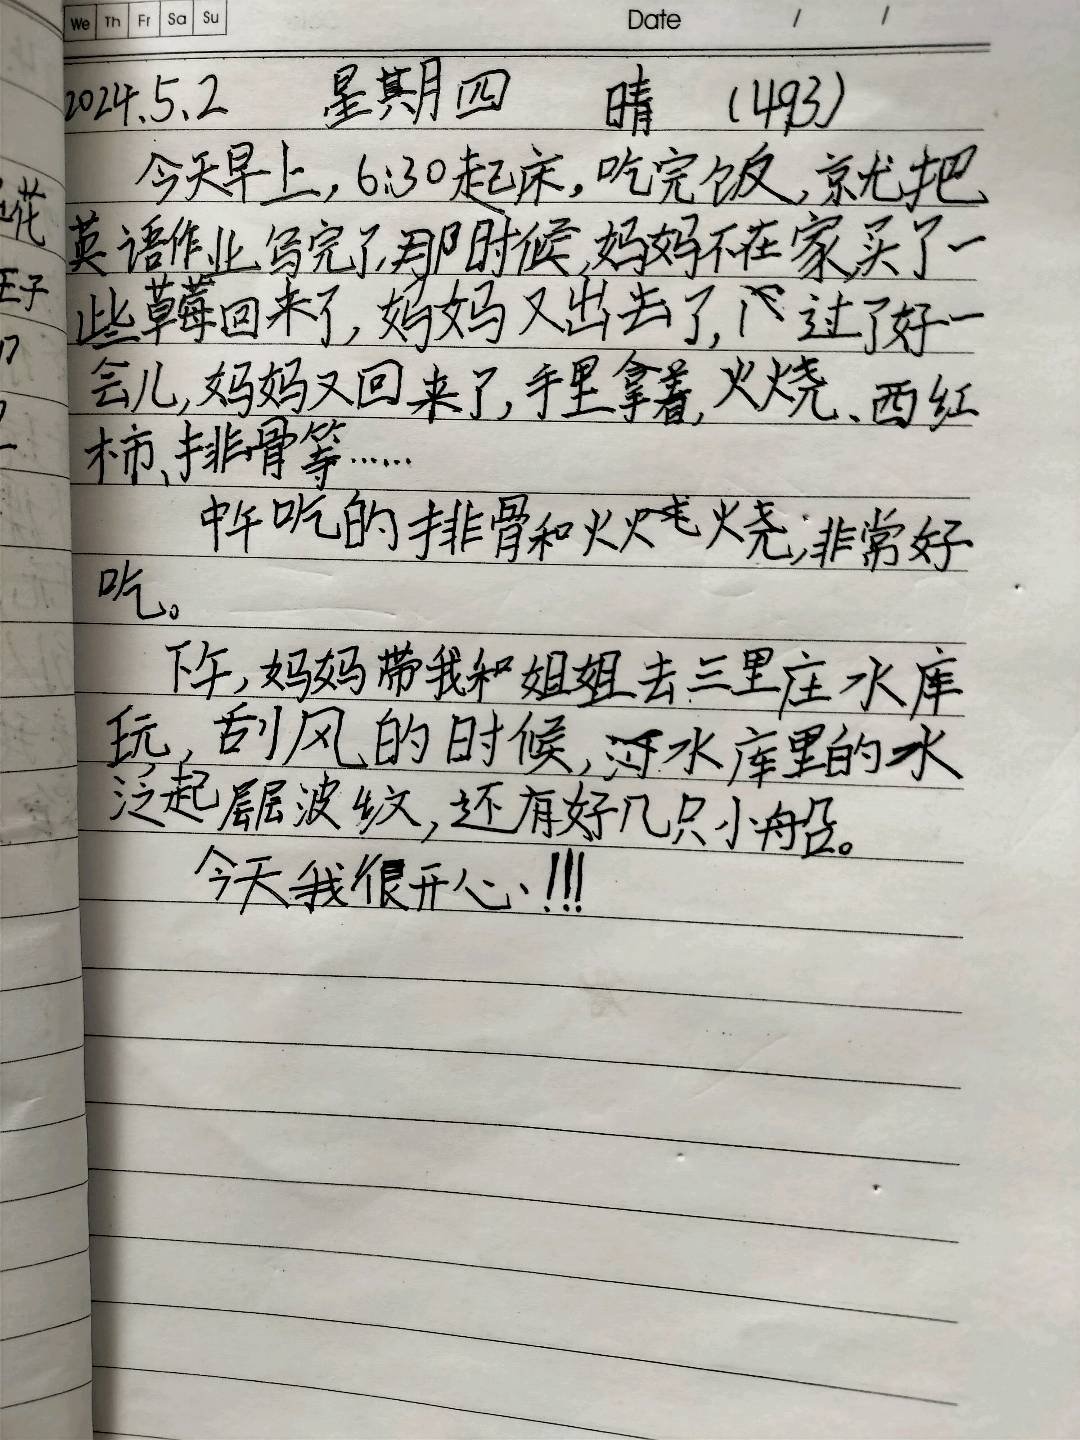 We Th Fr Sa Su Date / /
2024.5.2 星期四 晴 (493)
今天早上，6:30起床，吃完饭，就把
英语作业写完了，那时候，妈妈不在家，买了一
些草莓回来了，妈妈又出去了，过了好一
会儿，妈妈又回来了，手里拿着，火烧、西红
柿、排骨等……
中午吃的排骨和火烧，非常好
吃。
下午，妈妈带我和姐姐去三里庄水库
玩，刮风的时候，水库里的水
泛起层层波纹，还有好几只小船。
今天我很开心、!!!
花
王子